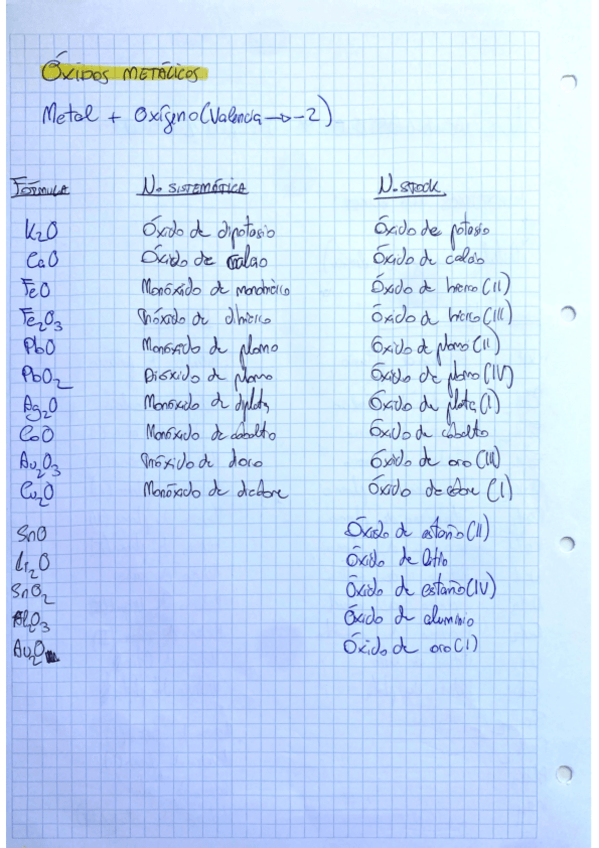 ÓXIDOS METÁLICOS
Metal + Oxígeno (Valencia → -2)
FÓRMULA N. SISTEMÁTICA N. STOCK
K2O Óxido de dipotasio Óxido de potasio
CaO Óxido de calcio Óxido de calcio
FeO Monóxido de monohierro Óxido de hierro (II)
Fe2O3 Trióxido de dihierro Óxido de hierro (III)
PbO Monóxido de plomo Óxido de plomo (II)
PbO2 Dióxido de plomo Óxido de plomo (IV)
Ag2O Monóxido de diplata Óxido de plata (I)
CoO Monóxido de cobalto Óxido de cobalto
Au2O3 Trióxido de dioro Óxido de oro (III)
Cu2O Monóxido de dicobre Óxido de cobre (I)
SnO Óxido de estaño (II)
Li2O Óxido de litio
SnO2 Óxido de estaño (IV)
Al2O3 Óxido de aluminio
Au2O Óxido de oro (I)